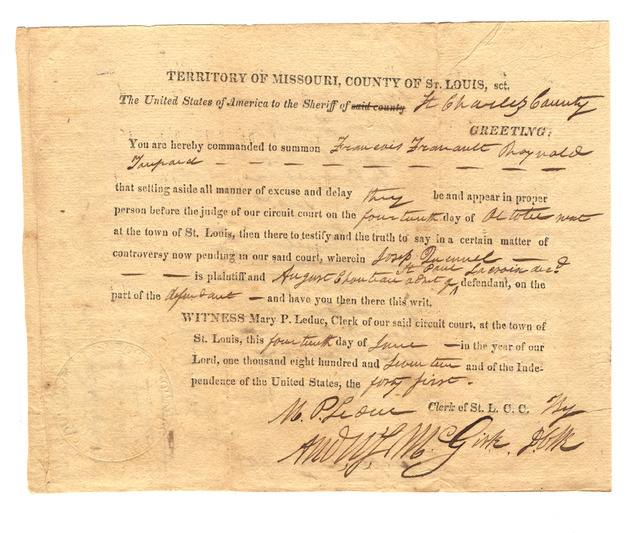 TERRITORY OF MISSOURI, COUNTY OF ST. LOUIS, sct.
The United States of America to the Sheriff of said county St Charles County
GREETING:
You are hereby commanded to summon Francois
that setting aside all manner of excuse and delay they be and appear in proper
person before the judge of our circuit court on the fourteenth day of October next
at the town of St. Louis, then there to testify and the truth to say in a certain matter of
controversy now pending in our said court, wherein
St Paul Lacroix decd
is plaintiff and August Chouteau admr of defendant, on the
part of the defendant and have you then there this writ.
WITNESS Mary P. Leduc, Clerk of our said circuit court, at the town of
St. Louis, this fourteenth day of June in the year of our
Lord, one thousand eight hundred and Seventeen and of the Inde-
pendence of the United States, the forty first.
M. P. Leduc Clerk of St. L. C. C. By
McGirk